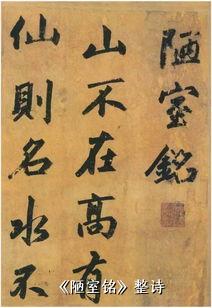 陋室銘
山不在高有
仙則名水不
《陋室铭》整诗